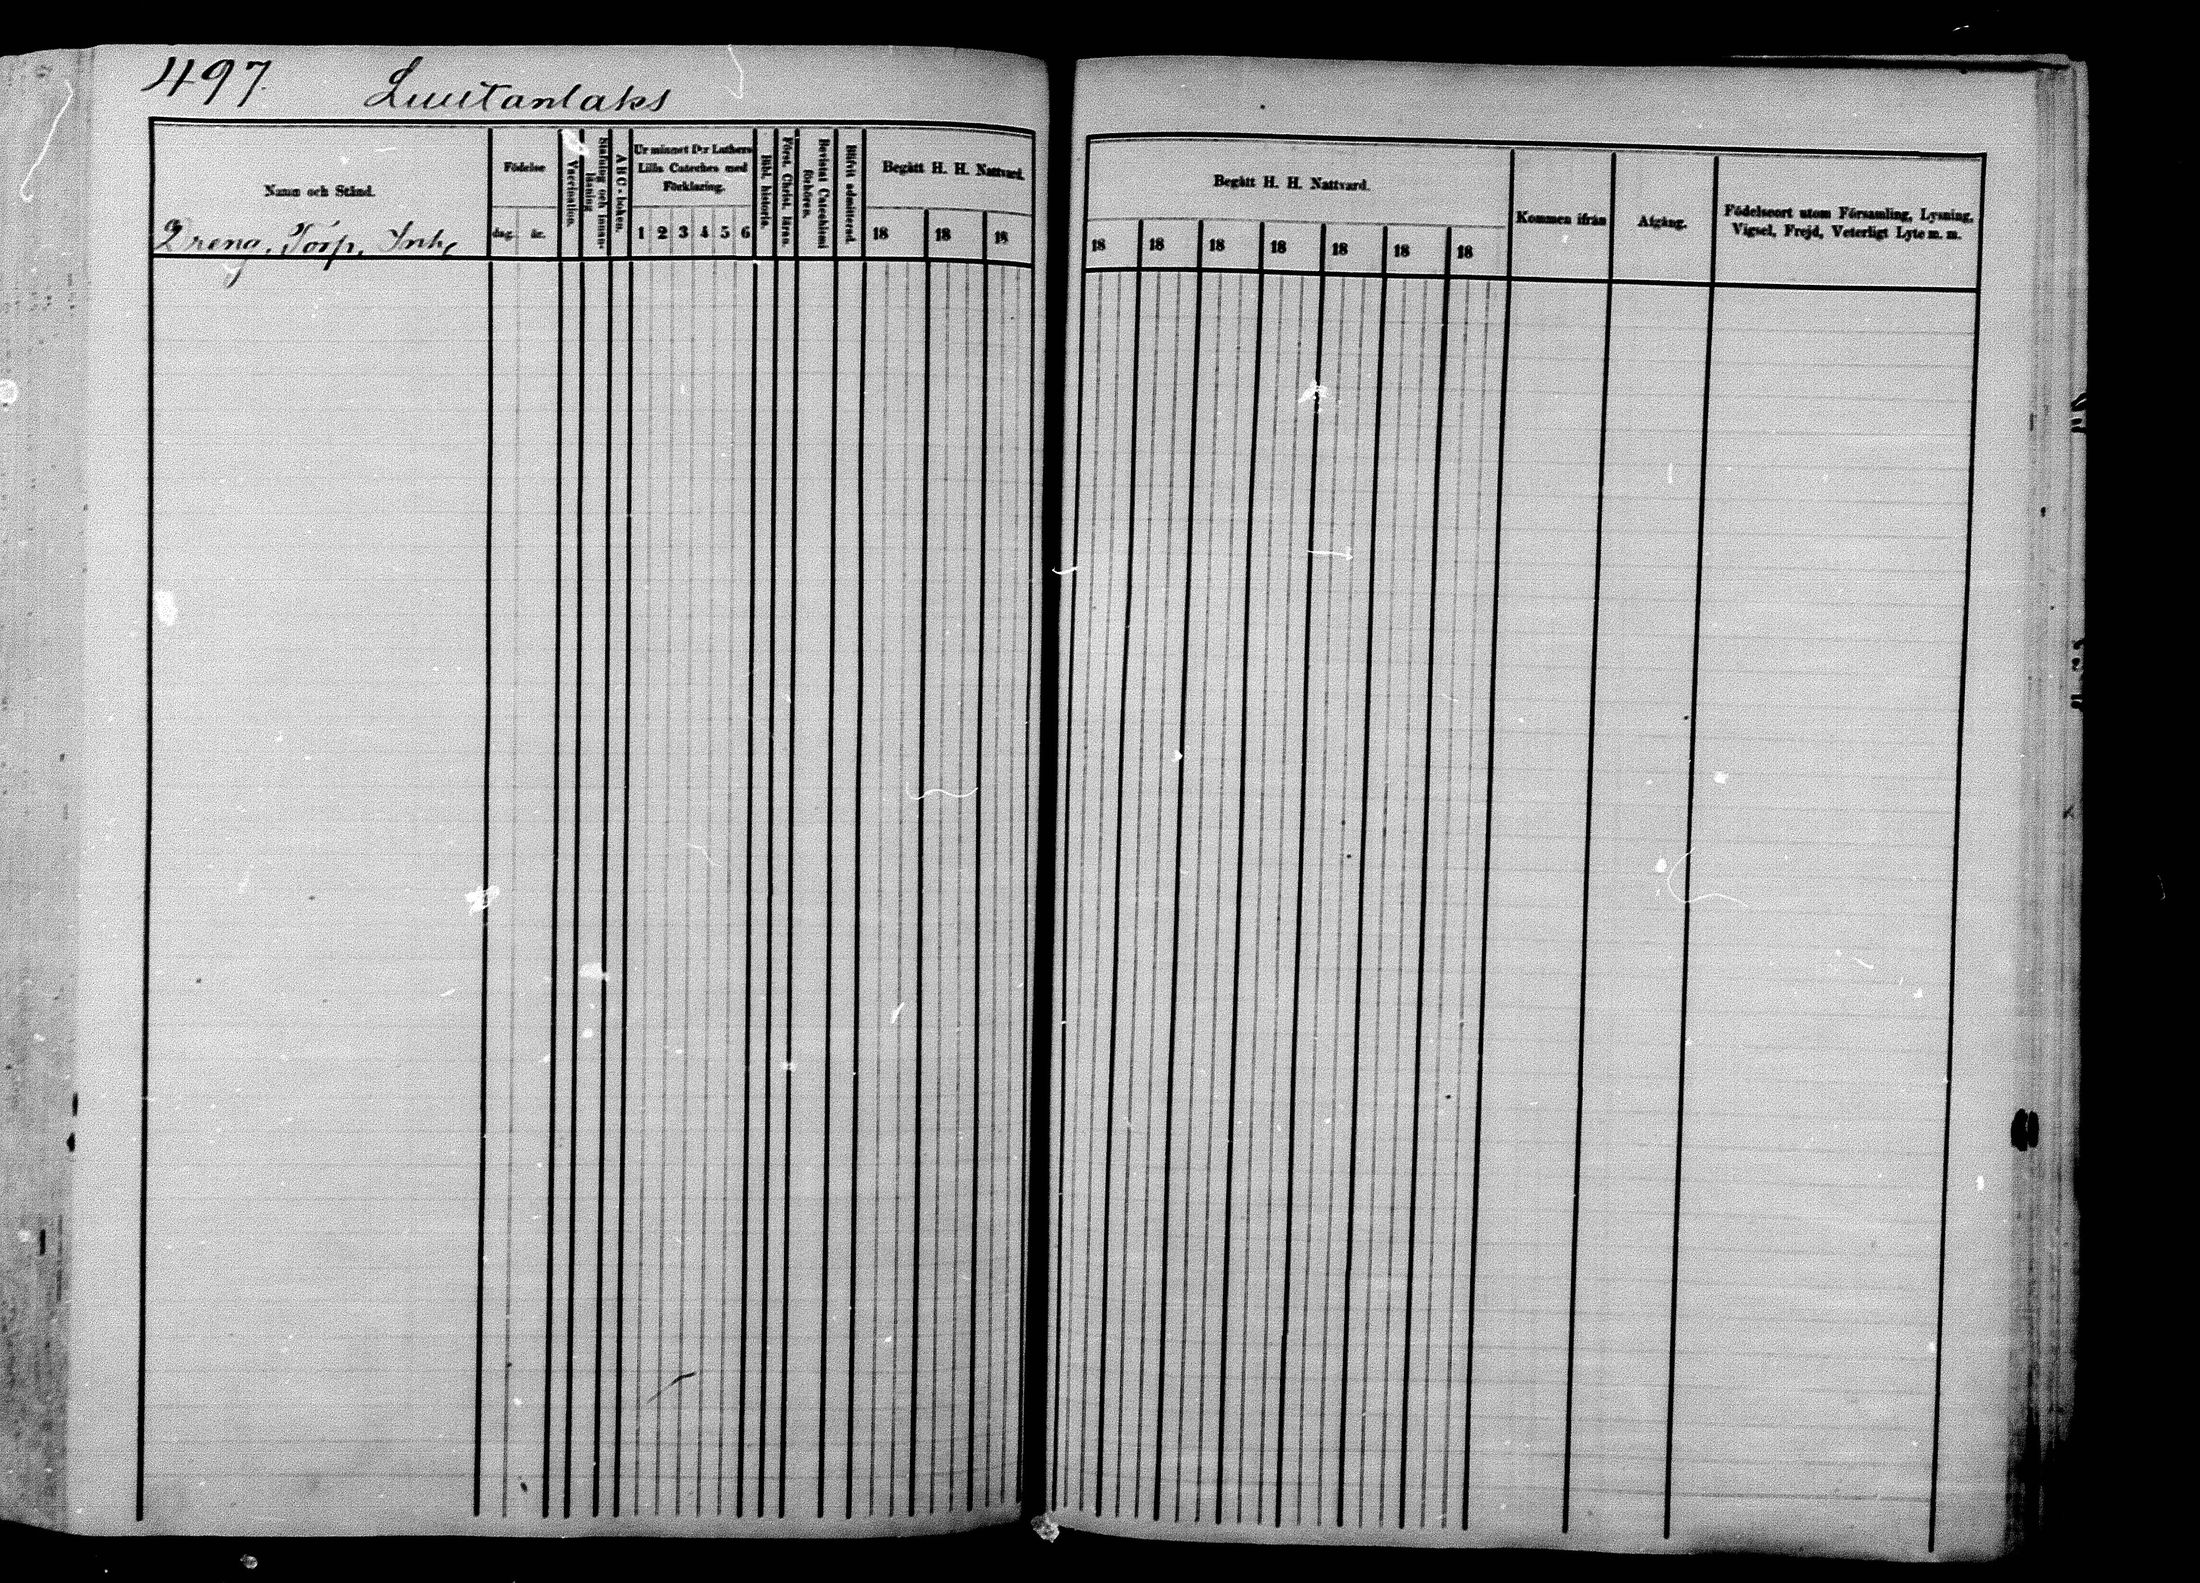 497.
Luutanlaks
Namn och Stånd.
Dreng. Torp. Inh.
Födelse
dag.
år.
Vaccination.
Stafning och innan-
läsning
A B C-boken.
Ur minnet D:r Luthers
Lilla Cateches med
Förklaring.
1 2 3 4 5 6
Bibl. historia.
Först. Christ. läran.
Bevistat Catechismi
förhören.
Blifvit admitterad.
Begått H. H. Nattvard.
18 18 18
Begått H. H. Nattvard.
18 18 18 18 18 18 18
Kommen ifrån
Afgång.
Födelseort utom Församling, Lysning,
Vigsel, Frejd, Veterligt Lyte m. m.